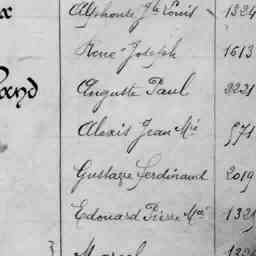 x Alphonse Jh Louis 1324
René Joseph 1613
and Auguste Paul 2221
Alexis Jean Mie 571
Gustave Ferdinand 2019
Edouard Pierre Mie 1321
Marcel